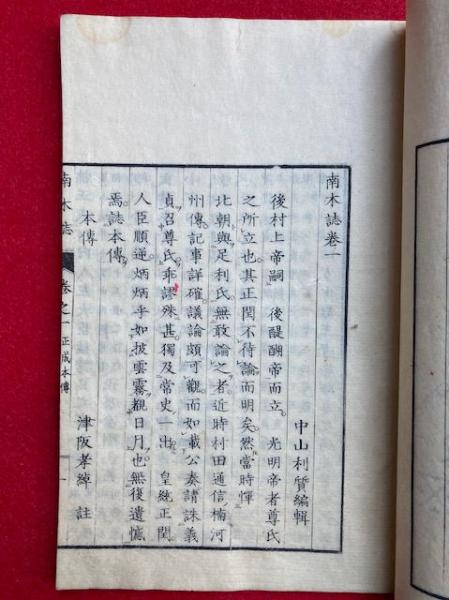 南木誌卷一
中山利質編輯
後村上帝嗣　後醍醐帝而立　光明帝者尊氏
之所立也其正閏不待論而明矣然當時憚
北朝與足利氏無敢論之者近時村田通信楠河
州傳記事詳確議論頗可觀而如載公奏請誅義
貞召尊氏乖謬殊甚獨及常史一出　皇統正閏
人臣順逆炳炳乎如披雲霧覩日月也無復遺憾
焉誌本傳
本傳
津阪孝綽　註
南木誌　卷之一　正成本傳　一